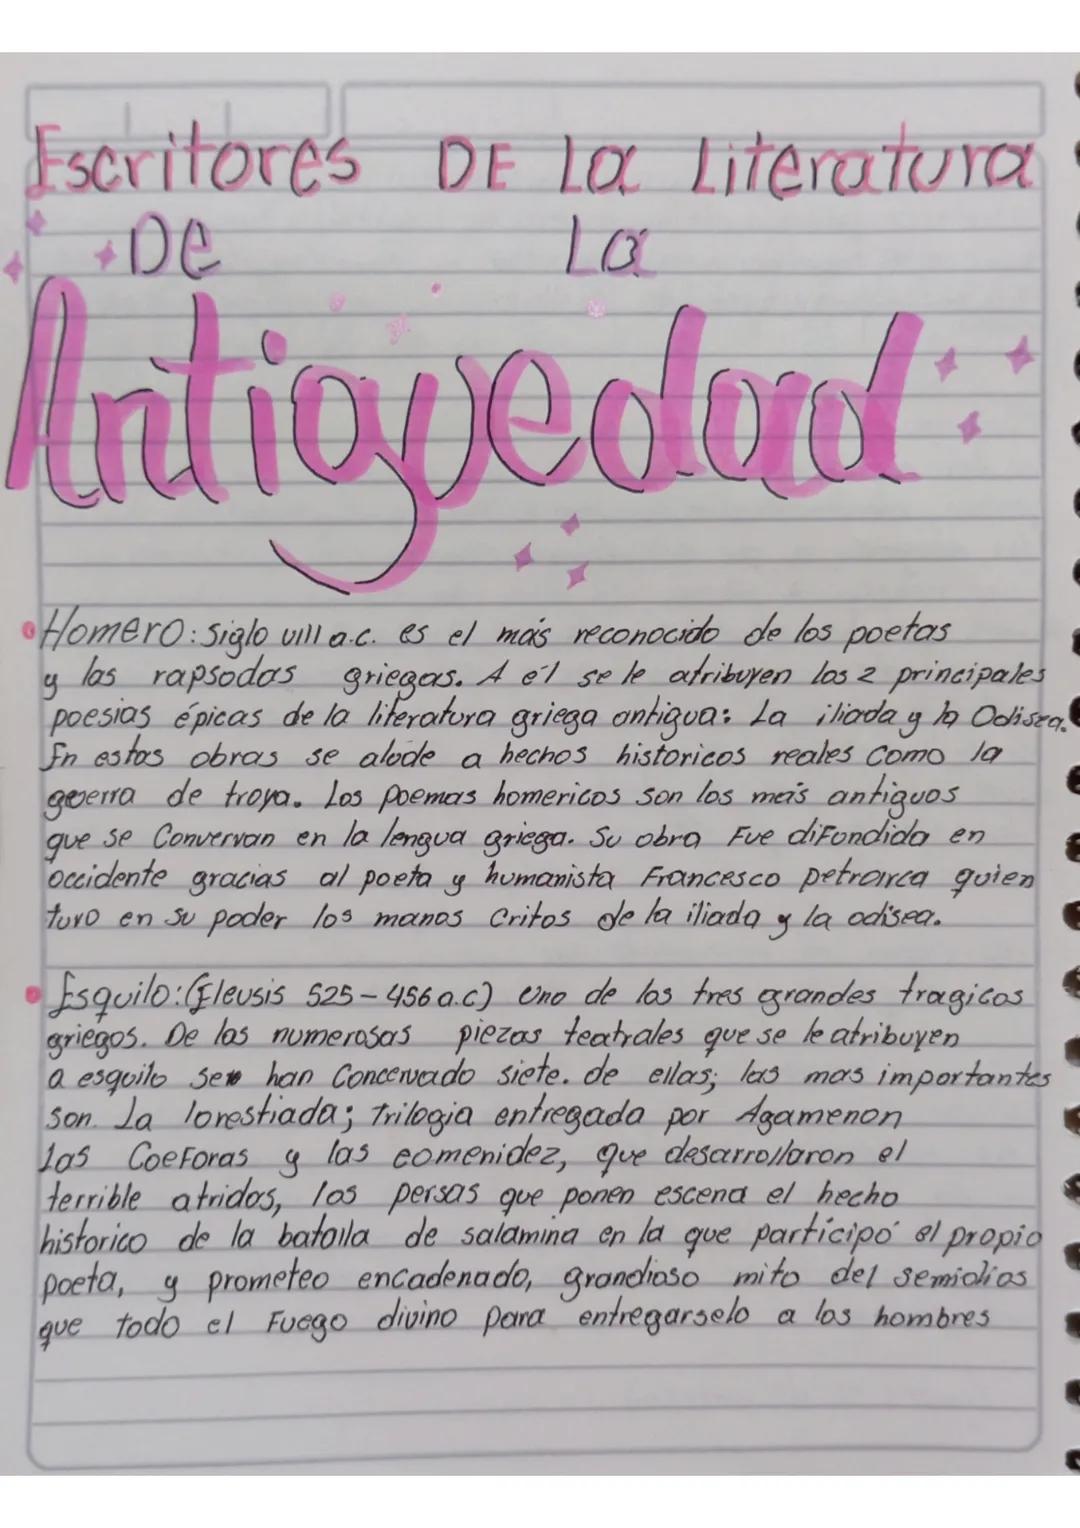 Escritores DE La Literatura
De La
Antiguedad
Homero: Siglo VIII a.c. es el más reconocido de los poetas
y las rapsodas griegas. A él se le atribuyen las 2 principales
poesias épicas de la literatura griega antigua: La iliada y la Odisea.
En estas obras se alude a hechos historicos reales Como la
guerra de troya. Los poemas homericos son los más antiguos
que se Convervan en la lengua griega. Su obra Fue diFundida en
occidente gracias al poeta y humanista Francesco petrarca quien
tuvo en su poder los manos Critos de la iliada y la odisea.
Esquilo: (Eleusis 525-456 a.c) Uno de los tres grandes tragicos
griegos. De las numerosas piezas teatrales que se le atribuyen
a esquilo se han Concervado siete. de ellas; las mas importantes
son. La lorestiada; Trilogia entregada por Agamenon
Las CoeForas y las eomenidez, que desarrollaron el
terrible atridas, los persas que ponen escena el hecho
historico de la batalla de salamina en la que participó el propio
poeta, y prometeo encadenado, grandioso mito del semidios
que todo el Fuego divino para entregarselo a los hombres